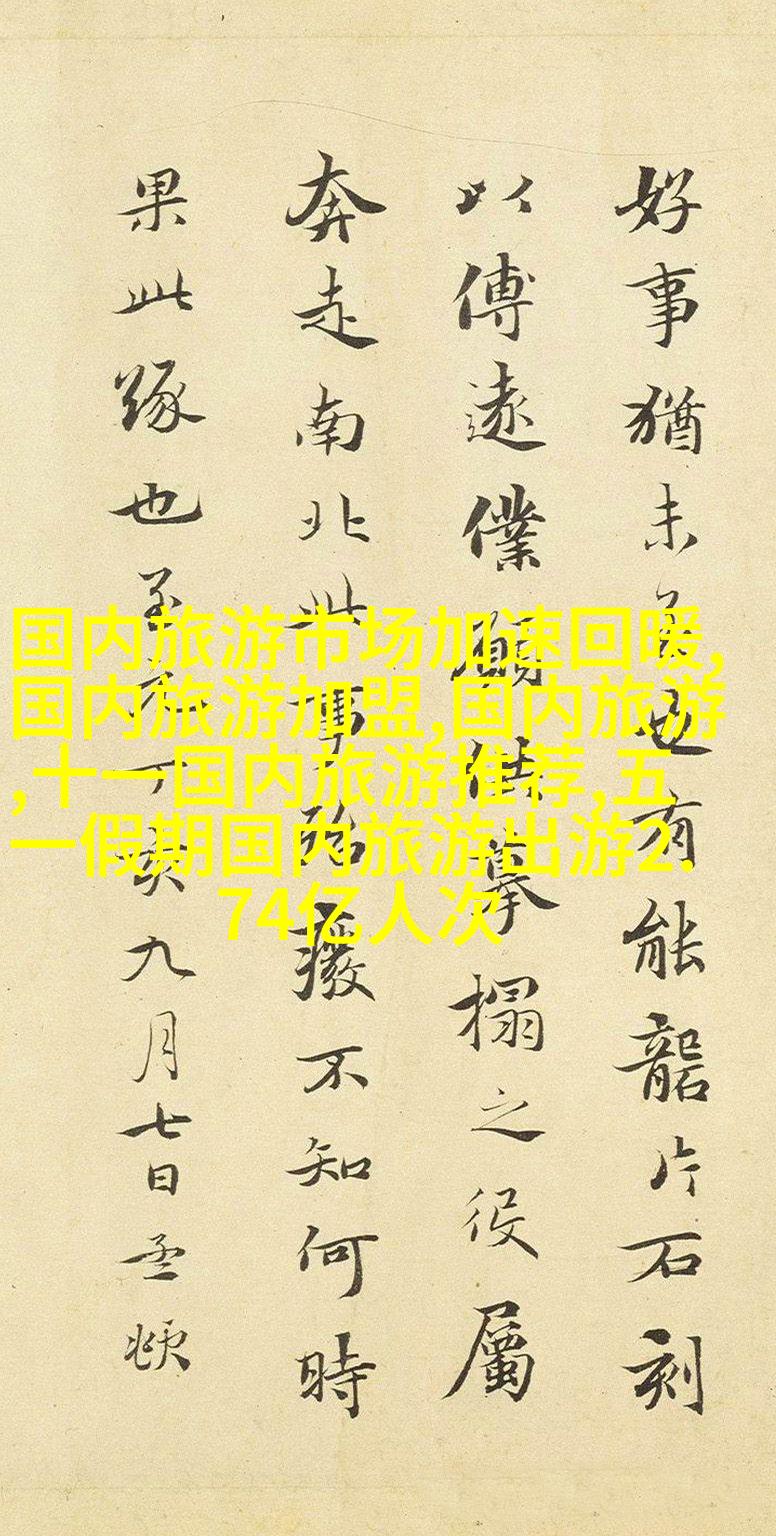 好事猶未也有能礱片石刻
以傳遠僕願供摹搨之役屬
奔走南北此事殆廢不知何時
果此緣也至元丁亥九月七日孟頫
国内旅游市场加速回暖,
国内旅游加盟,国内旅游
,十一国内旅游推荐,五
一假期国内旅游出游2.
74亿人次